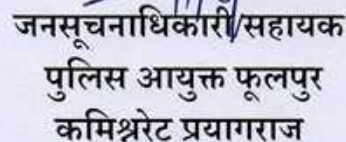 जनसूचनाधिकारी/सहायक
पुलिस आयुक्त फूलपुर
कमिश्नरेट प्रयागराज